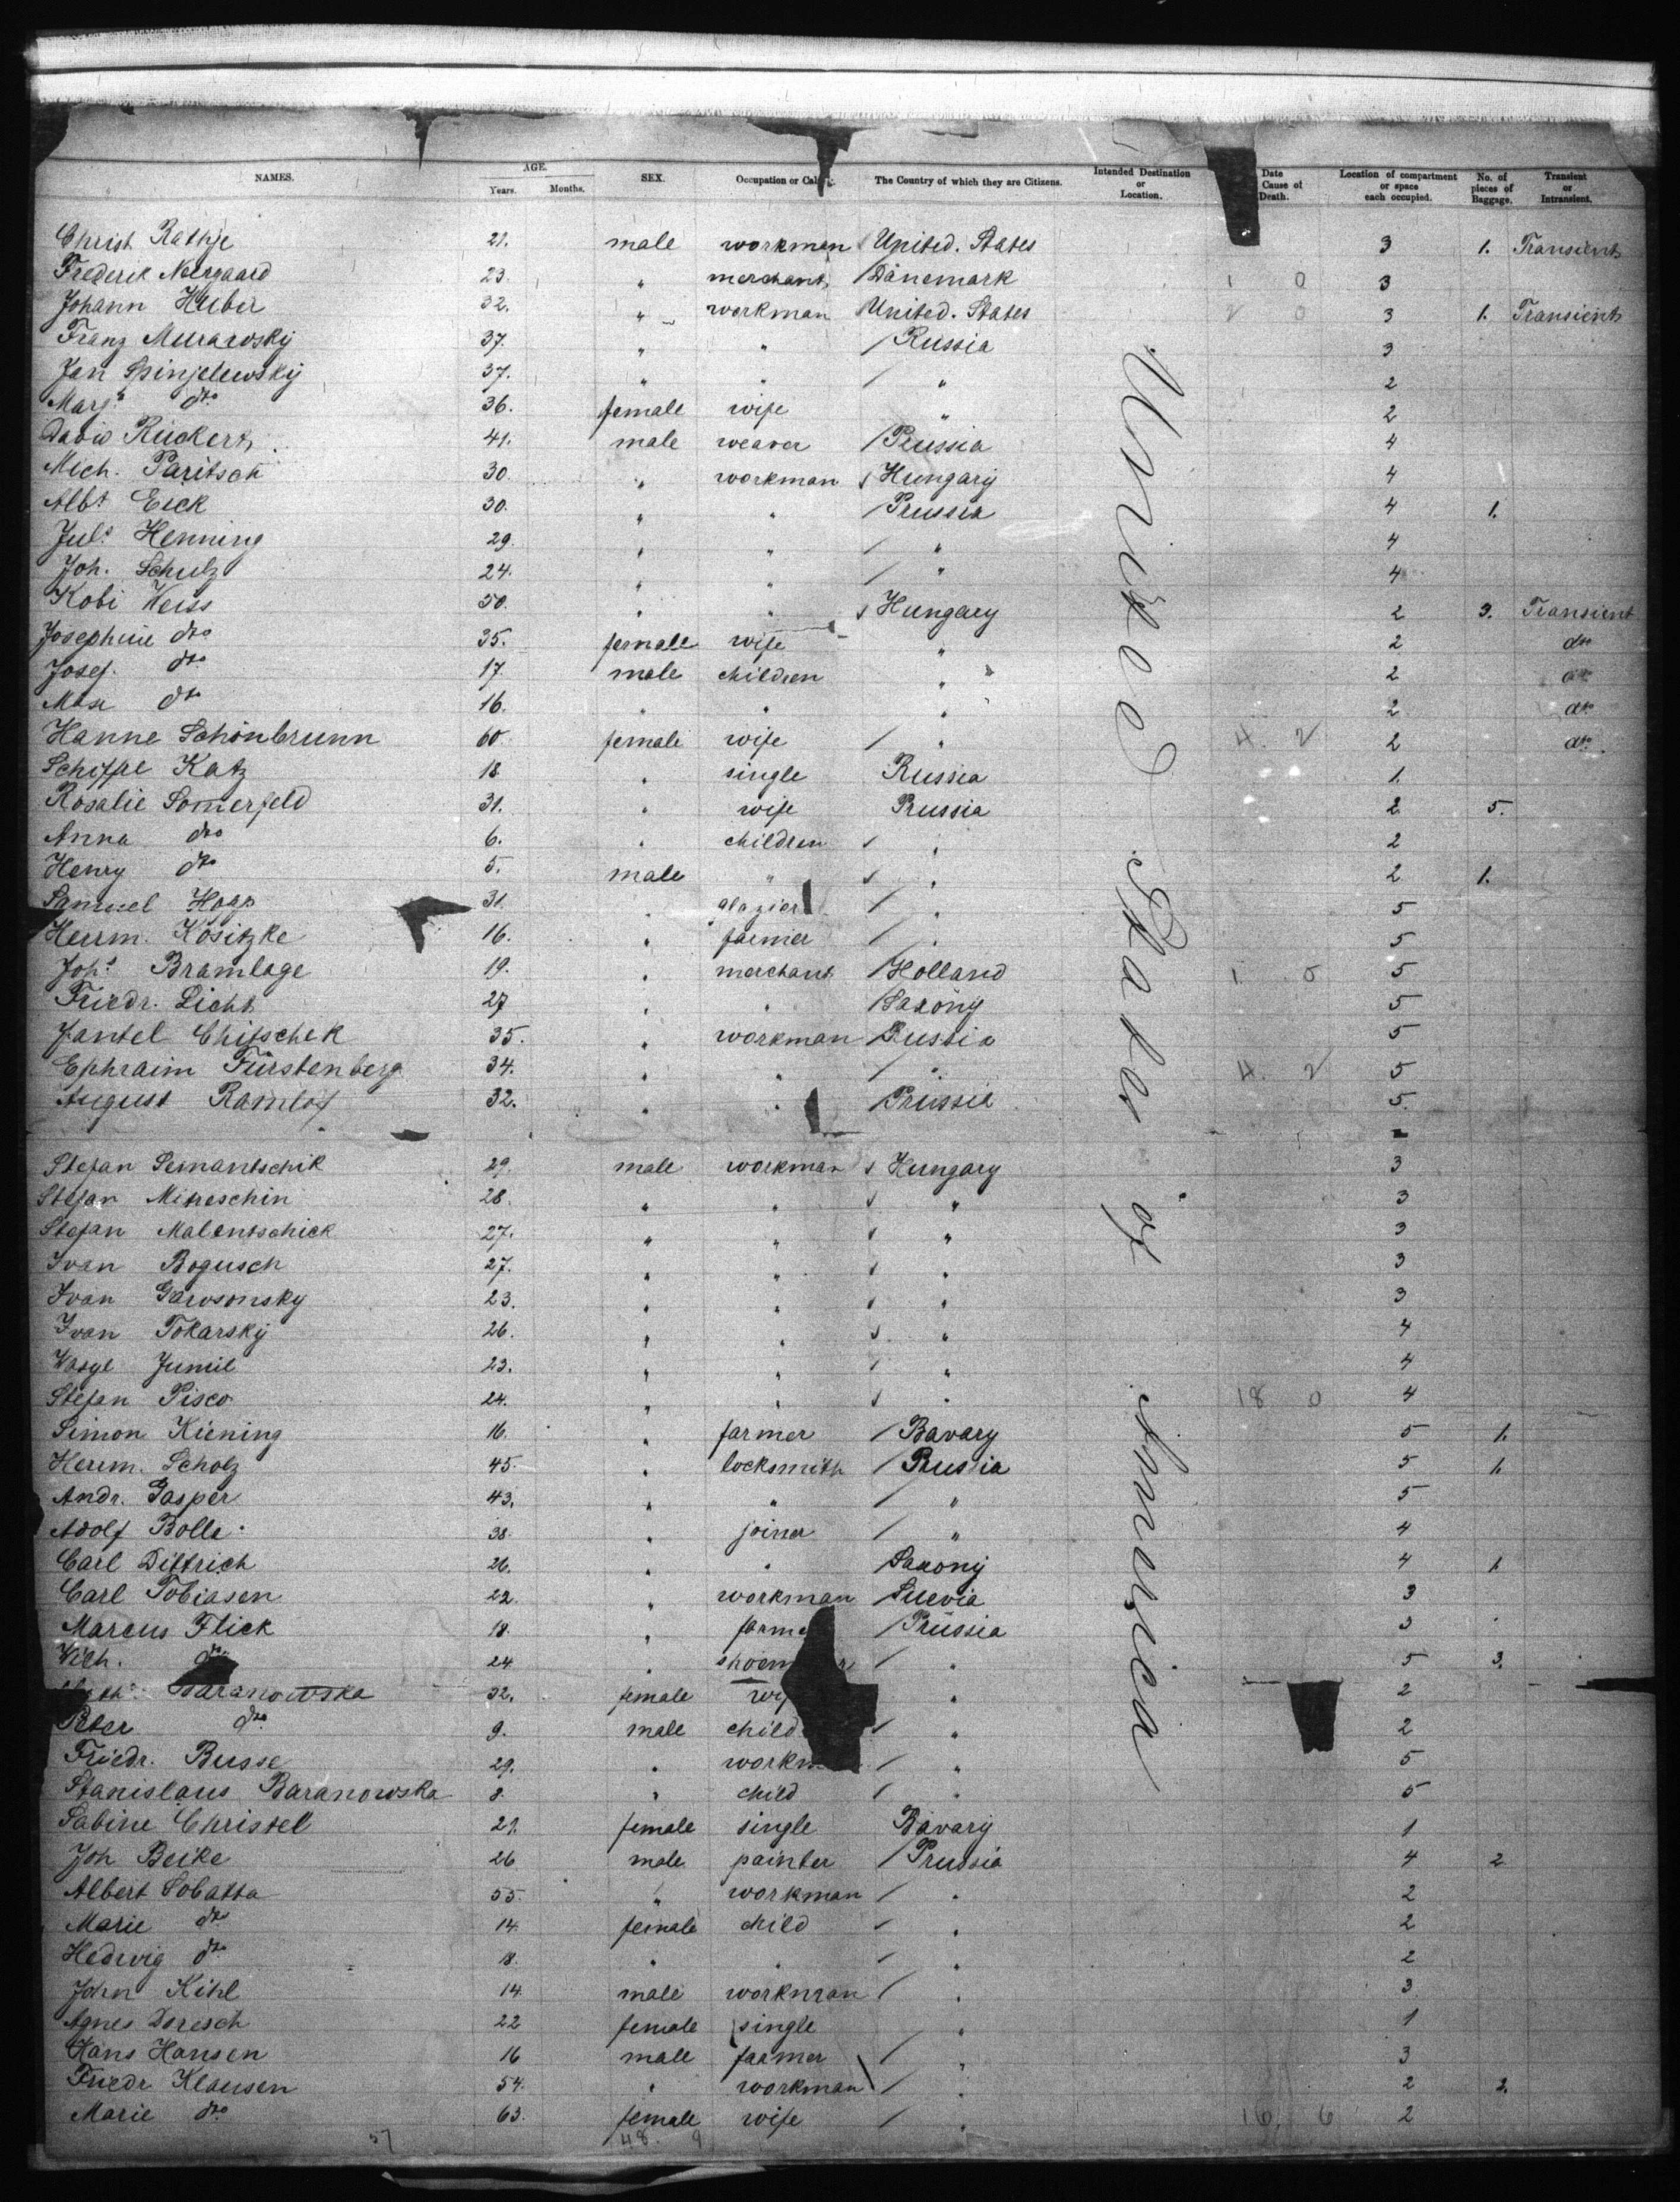 NAMES. AGE. Years. Months. SEX. Occupation or The Country of which they are Citizens. Intended Destination or Location. Date Cause of Death. Location of compartment or space each occupied. No. of pieces of Baggage. Transient or Intransient.
Christ Rathje 21. male workman United. States 3 1. Transient
Frederik Neergaard 23 " merchant Dänemark 1 0 3
Johann Huber 32. " workman United. States 2 0 3 1. Transient
Franz Murawsky 37. " " Russia 3
Jan Spinjelewsky 37. " " " 2
Marg.a dto 36. female wife " 2
David Rückert 41. male weaver Prussia 4
Mich. Paritsch 30. " workman Hungary 4
Albt Eick 30. " " Prussia 4 1.
Juls Henning 29. " " " 4
Joh. Schulz 24. " " " 4
Kobi Weiss 50. " " Hungary 2 3. Transient
Josephine dto 35. female wife " 2 dto
Josef. dto 17. male children " 2 dto
Max dto 16. " " " 2 dto
Hanne Schönbrunn 60 female wife " 4. 2 2 dto
Katz 18 " single Russia 1.
Rosalie Somerfeld 31. " wife Prussia 2 5.
Anna dto 6. " children " 2
Henry dto 5. male " " 2 1.
Samuel 31. " glazier " 5
Herrm. Kositzke 16. " farmer " 5
Johs Bramlage 19. " merchant Holland 1 0 5
Friedr. Licht 27 " " Saxony 5
Jantel Chitschek 35. " workman Russia 5
Ephraim Fürstenberg 34. " " " 4. 2 5
August Ramlof 32. " " Prussia 5.
Stefan Semantschik 29. male workman Hungary 3
Stefan 28. " " " 3
Stefan Malentschick 27. " " " 3
Ivan Bogusch 27. " " " 3
Ivan Gawsonsky 23. " " " 3
Ivan Tokarsky 26. " " " 4
Wasyl Jumil 23. " " " 4
Stefan Pisco 24. " " " 18 0 4
Simon Kiening 16. " farmer Bavary 5 1.
Herrm. Scholz 45. " locksmith Prussia 5 1.
Andr. Gasper 43. " " " 5
Adolf Bolle 38. " joiner " 4
Carl Dittrich 26. " " Saxony 4 1.
Carl Tobiasen 22. " workman Suevia 3
Marcus Flick 18. " farme Prussia 3
Wilh. dto 24. " shoem r " 5 3.
Baranowska 32. female wif " 2
Peter dto 9. male child " 2
Friedr. Busse 29. " workm " 5
Stanislaus Baranowska 8. " child " 5
Sabine Christel 21. female single Bavary 1
Joh Beike 26 male painter Prussia 4 2
Albert Sobatta 55. " workman " 2
Marie dto 14. female child " 2
Hedwig dto 18. " " " 2
John Kihl 14 male workman " 3
Agnes Doresch 22 female single " 1
Hans Hansen 16 male farmer " 3
Friedr Klausen 54. " workman " 2 2.
Marie dto 63. female wife " 16. 6 2
57 48. 9
United States of America